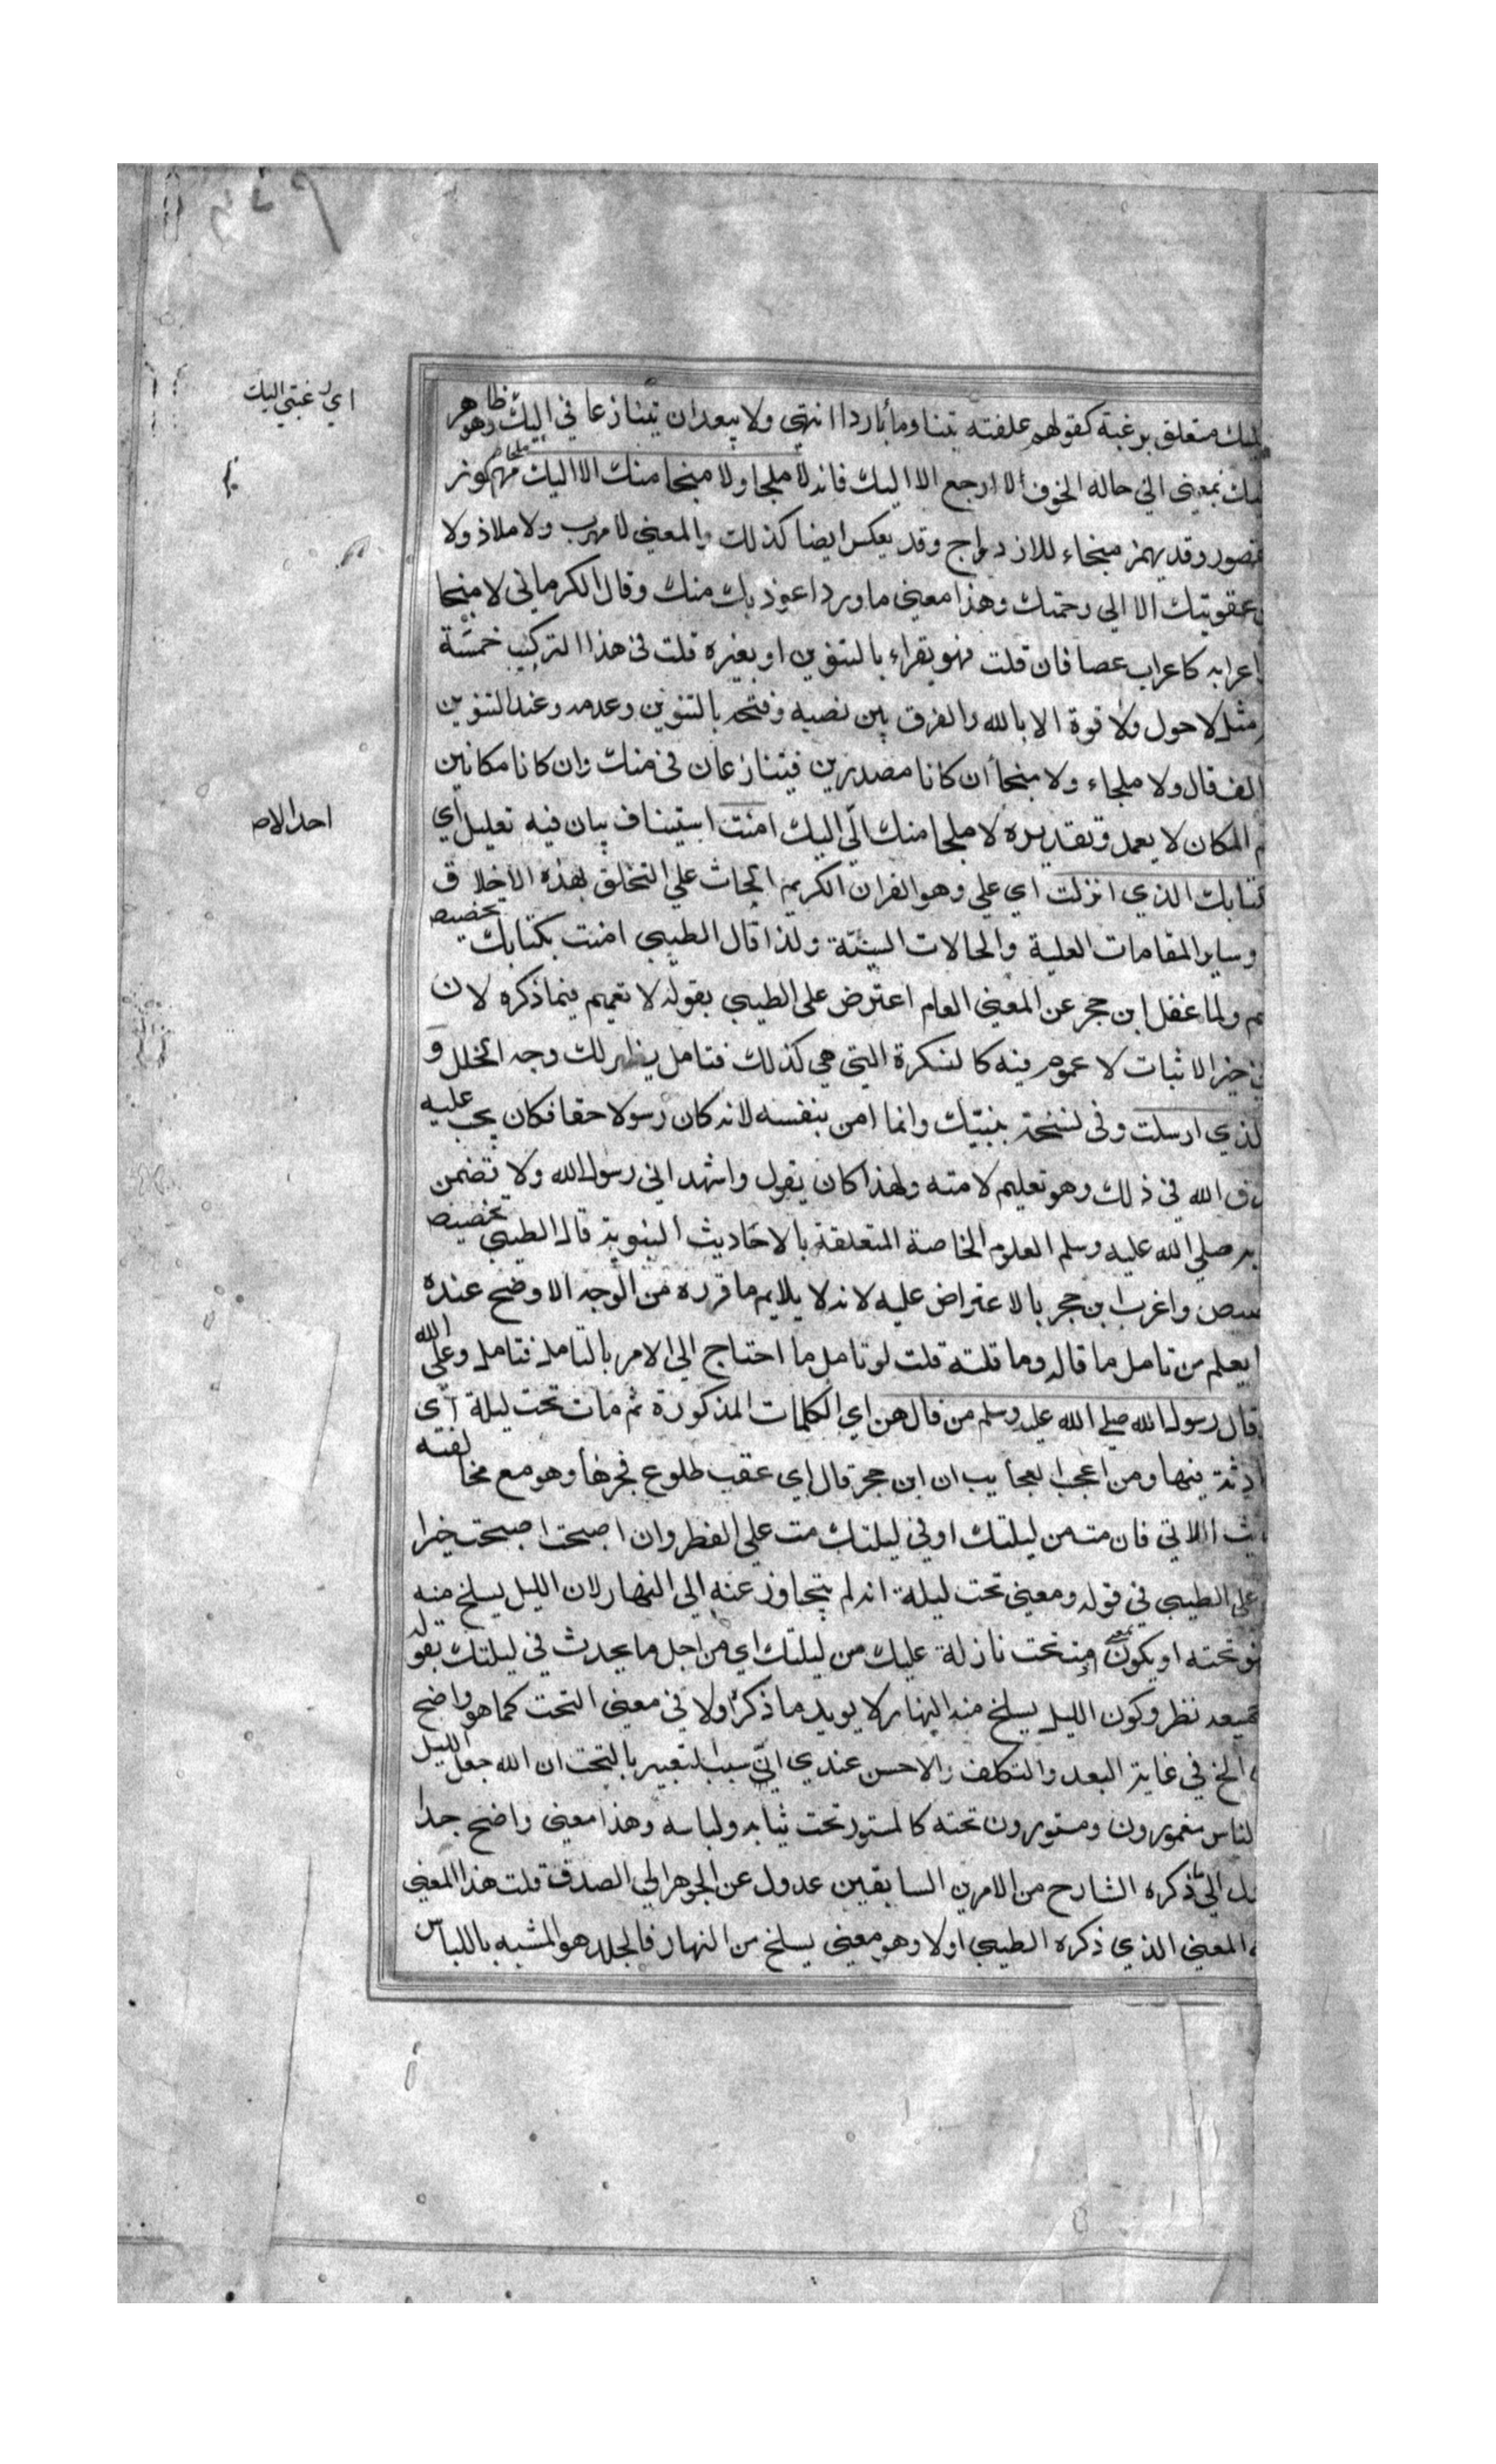 اليك متعلق برغبة كقولهم علفته تبنا وماء باردا انتهى ولا يبعد ان يتنازعا في اليك وهو ظاهر
اي رغبتي اليك
بمعنى اني حالة الخوف لا ارجع الا اليك فانه لا ملجا ولا منجا منك الا اليك ملجا مهموز
مقصور وقد يهمز منجاء للازدواج وقد يعكس ايضا كذلك والمعنى لا مهرب ولا ملاذ ولا
عقوبتك الا الي رحمتك وهذا معنى ما ورد اعوذ بك منك وقال الكرماني لا منجا
اعرابه كاعراب عصا فان قلت فهو يقراء بالتنوين او بغيره قلت في هذا التركيب خمسة
مثل لا حول ولا قوة الا بالله والفرق بين نصبه وفتحه بالتنوين وعدمه وعند التنوين
الف قال ولا ملجاء ولا منجا ان كانا مصدرين فيتنازعان في منك وان كانا مكانين
المكان لا يعمل وتقديره لا ملجا منك الي اليك امنت استيناف بيان فيه تعليل اي
احد الا
كتابك الذي انزلت اي علي وهو القران الكريم الحاث علي التخلق بهذه الاخلاق
وساير المقامات العلية والحالات السنية ولذا قال الطيبي امنت بكتابك تخصيص
ولما غفل ابن حجر عن المعنى العام اعترض على الطيبي بقوله لا تعميم فيما ذكره لان
خبر الاثبات لا عموم فيه كالنكرة التي هي كذلك فتامل يظهر لك وجه الخلل و
الذي ارسلت وفي نسخة بنبيك وانما امن بنفسه لانه كان رسولا حقا فكان يجب عليه
الله في ذلك وهو تعليم لامته ولهذا كان يقول واشهد اني رسول الله ولا تضمن
صلي الله عليه وسلم العلوم الخاصة المتعلقة بالاحاديث النبوية قال الطيبي تخصيص
واغرب ابن حجر بالاعتراض عليه لانه لا يلايم ما قرره من الوجه الاوضح عنده
يعلم من تامل ما قاله وما قلته قلت لو تامل ما احتاج الي الامر بالتامل فتامل وعلي الله
قال رسول الله صلي الله عليه وسلم من قالهن اي الكلمات المذكورة ثم مات تحت ليلة اي
فيها ومن اعجب العجايب ان ابن حجر قال اي عقب طلوع فجرها وهو مع مخالفته
اللاتي فان مت من ليلتك او في ليلتك مت علي الفطر وان اصبحت اصبحت خيرا
على الطيبي في قوله ومعنى تحت ليلة انه لم يتجاوز عنه الي النهار لان الليل يسلخ منه
تحته او يكون مت تحت نازلة عليك من ليلتك اي من اجل ما يحدث في ليلتك بقوله
نظر وكون الليل يسلخ منه النهار لا يويد ما ذكر اولا في معنى التحت كما هو واضح
الخ في غاية البعد والتكلف والاحسن عندي ان سبب التعبير بالتحت ان الله جعل الليل
لناس مغمورون ومستورون تحته كالمستور تحت ثيابه ولباسه وهذا معنى واضح جدا
الي ما ذكره الشارح من الامرين السابقين عدول عن الجوهر الي الصدف قلت هذا المعني
المعنى الذي ذكره الطيبي اولا وهو معنى يسلخ من النهار فالجلد هو المشبه باللباس